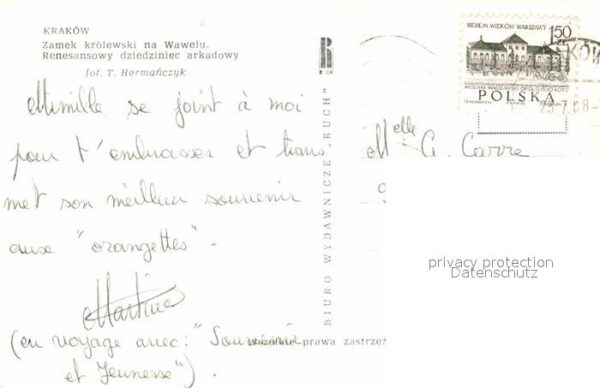 KRAKÓW
Zamek królewski na Wawelu.
Renesansowy dziedziniec arkadowy
fot. T. Hermańczyk
Mimille se joint à moi
pour t'embrasser et trans
met son meilleur souvenir
aux "orangettes" -
Martine
(en voyage avec: "Sourire
et Jeunesse").
BIURO WYDAWNICZE „RUCH”
Wszelkie prawa zastrze
SIEDEM WIEKÓW WARSZAWY
1,50
POLSKA
Melle G. Carre
privacy protection
Datenschutz